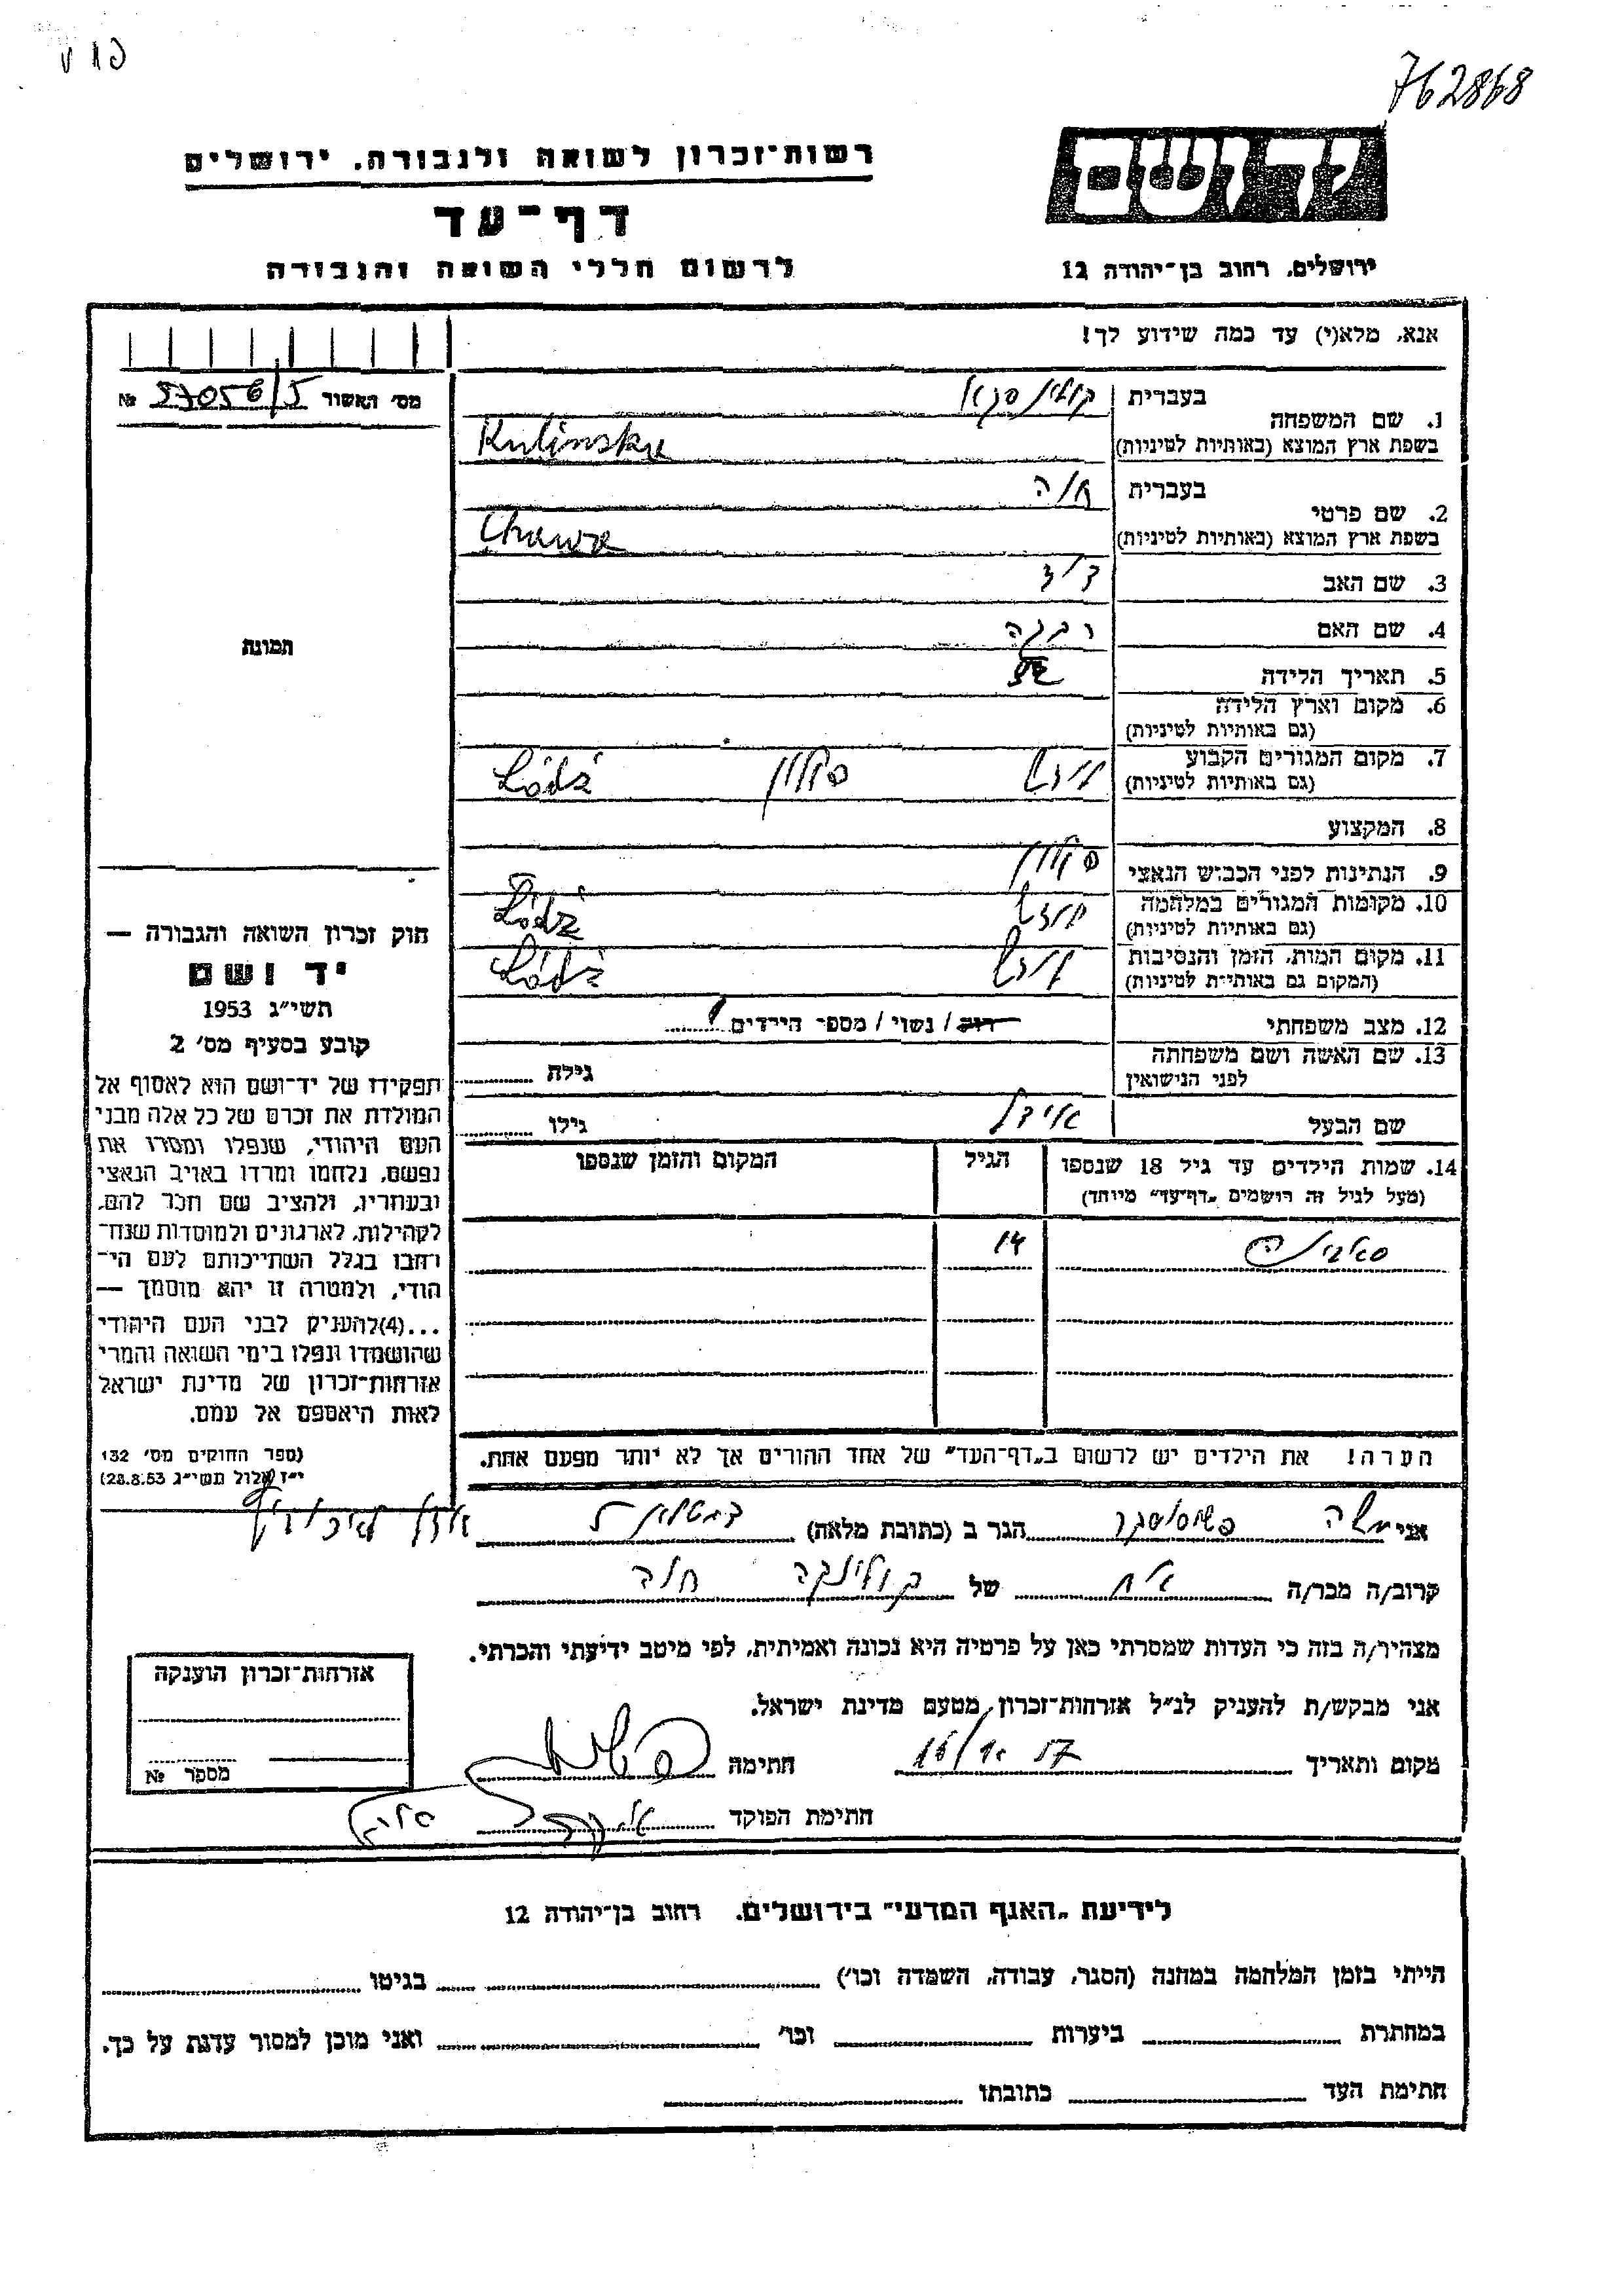 762868
יד ושם
רשות־זכרון לשואה ולגבורה. ירושלים
דף־עד
ירושלים. רחוב בן־יהודה 12
לרשום חללי השואה והגבורה
אנא, מלא(י) עד כמה שידוע לך!
מס׳ האשור 57056/5 №
1. שם המשפחה
בעברית
בשפת ארץ המוצא (באותיות לטיניות) Kulinska
2. שם פרטי
בעברית חוה
בשפת ארץ המוצא (באותיות לטיניות) Chawa
3. שם האב דוד
4. שם האם רבקה
תמונה
5. תאריך הלידה
6. מקום וארץ הלידה
(גם באותיות לטיניות)
7. מקום המגורים הקבוע לודז׳ פולין Łódź
(גם באותיות לטיניות)
8. המקצוע
9. הנתינות לפני הכבוש הנאצי פולין
10. מקומות המגורים במלחמה לודז׳ Łódź
(גם באותיות לטיניות)
11. מקום המות, הזמן והנסיבות לודז׳ Łódź
(המקום גם באותיות לטיניות)
12. מצב משפחתי רוק / נשוי / מספר הילדים 1
13. שם האשה ושם משפחתה
לפני הנישואין
גילה
שם הבעל
גילו
14. שמות הילדים עד גיל 18 שנספו
(מעל לגיל זה רושמים „דף־עד״ מיוחד)
הגיל
המקום והזמן שנספו
14
הערה! את הילדים יש לרשום ב„דף־העד״ של אחד ההורים אך לא יותר מפעם אחת.
חוק זכרון השואה והגבורה —
יד ושם
תשי״ג 1953
קובע בסעיף מס׳ 2
תפקידו של יד־ושם הוא לאסוף אל
המולדת את זכרם של כל אלה מבני
העם היהודי, שנפלו ומסרו את
נפשם, נלחמו ומרדו באויב הנאצי
ובעוזריו, ולהציב שם וזכר להם,
לקהילות, לארגונים ולמוסדות שנח־
רבו בגלל השתייכותם לעם הי־
הודי, ולמטרה זו יהא מוסמך —
...(4)להעניק לבני העם היהודי
שהושמדו ונפלו בימי השואה והמרי
אזרחות־זכרון של מדינת ישראל
לאות היאספם אל עמם.
(ספר החוקים מס׳ 132
י״ז אלול תשי״ג 28.8.53)
אני משה הגר ב (כתובת מלאה)
קרוב/ה מכר/ה אח של קולינסקה חוה
מצהיר/ה בזה כי העדות שמסרתי כאן על פרטיה היא נכונה ואמיתית, לפי מיטב ידיעתי והכרתי.
אני מבקש/ת להעניק לנ״ל אזרחות־זכרון מטעם מדינת ישראל.
מקום ותאריך 16/10 57 חתימה
חתימת הפוקד
אזרחות־זכרון הוענקה
מספר №
לידיעת „האגף המדעי״ בירושלים. רחוב בן־יהודה 12
הייתי בזמן המלחמה במחנה (הסגר, עבודה, השמדה וכו׳) בגיטו
במחתרת ביערות וכו׳ ואני מוכן למסור עדות על כך.
חתימת העד כתובתו